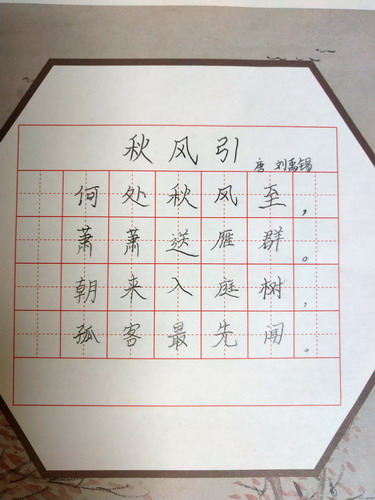 秋风引
唐 刘禹锡
何处秋风至，
萧萧送雁群。
朝来入庭树，
孤客最先闻。